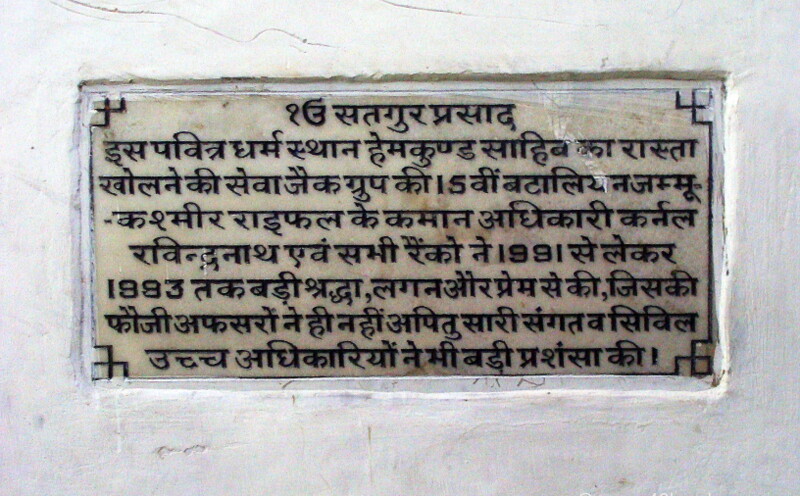 ੧ੳ सतगुर प्रसाद
इस पवित्र धर्म स्थान हेमकुण्ड साहिब का रास्ता
खोलने की सेवा जैक ग्रुप की 15वीं बटालियन जम्मू-
-कश्मीर राइफल के कमान अधिकारी कर्नल
रविन्द्रनाथ एवं सभी रैंको ने 1991 से लेकर
1993 तक बड़ी श्रद्धा, लगन और प्रेम से की, जिसकी
फौजी अफसरों ने ही नहीं अपितु सारी संगत व सिविल
उच्च अधिकारियों ने भी बड़ी प्रशंसा की।